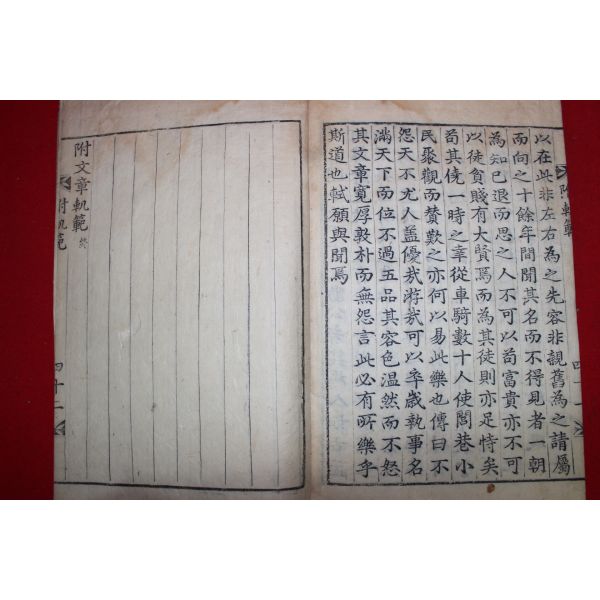 附軌範
以在此非左右為之先容非親舊為之請屬
而向之十餘年間聞其名而不得見者一朝
為知己退而思之人不可以苟富貴亦不可
以徒貧賤有大賢焉而為其徒則亦足恃矣
苟其僥一時之幸從車騎數十人使閭巷小
民聚觀而賛歎之亦何以易此樂也傳曰不
怨天不尤人盖優哉游哉可以卒歲執事名
滿天下而位不過五品其容色温然而不怒
其文章寛厚敦朴而無怨言此必有所樂乎
斯道也軾願與聞焉
附文章軌範 終
附軌範 四十二